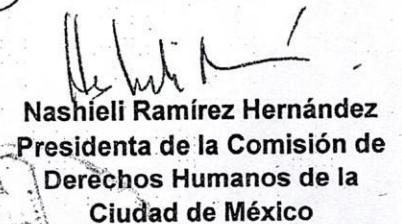 Nashieli Ramírez Hernández
Presidenta de la Comisión de
Derechos Humanos de la
Ciudad de México